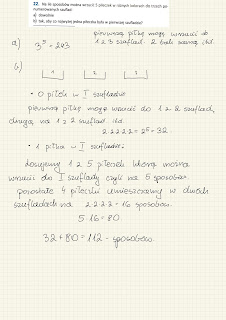 22. Na ile sposobów można wrzucić 5 piłeczek o różnych kolorach do trzech ponumerowanych szuflad:
a) dowolnie
b) tak, aby co najwyżej jedna piłeczka była w pierwszej szufladzie?
pierwszą piłkę mogę wrzucić do
a) 3⁵ = 243 1 2 3 szuflad. 2 tak samo itd.
b)
1 2 3
• 0 piłek w I szufladzie
pierwszą piłkę mogę wrzucić do 1 z 2 szuflad,
drugą na 1 z 2 szuflad itd.
2·2·2·2·2 = 2⁵ = 32
• 1 piłka w I szufladzie:
losujemy 1 z 5 piłeczek którą można
wrzucić do I szuflady czyli na 5 sposobów
pozostałe 4 piłeczki umieszczamy w dwóch
szufladach na 2·2·2·2 = 16 sposobów.
5·16 = 80.
32 + 80 = 112 - sposobów.